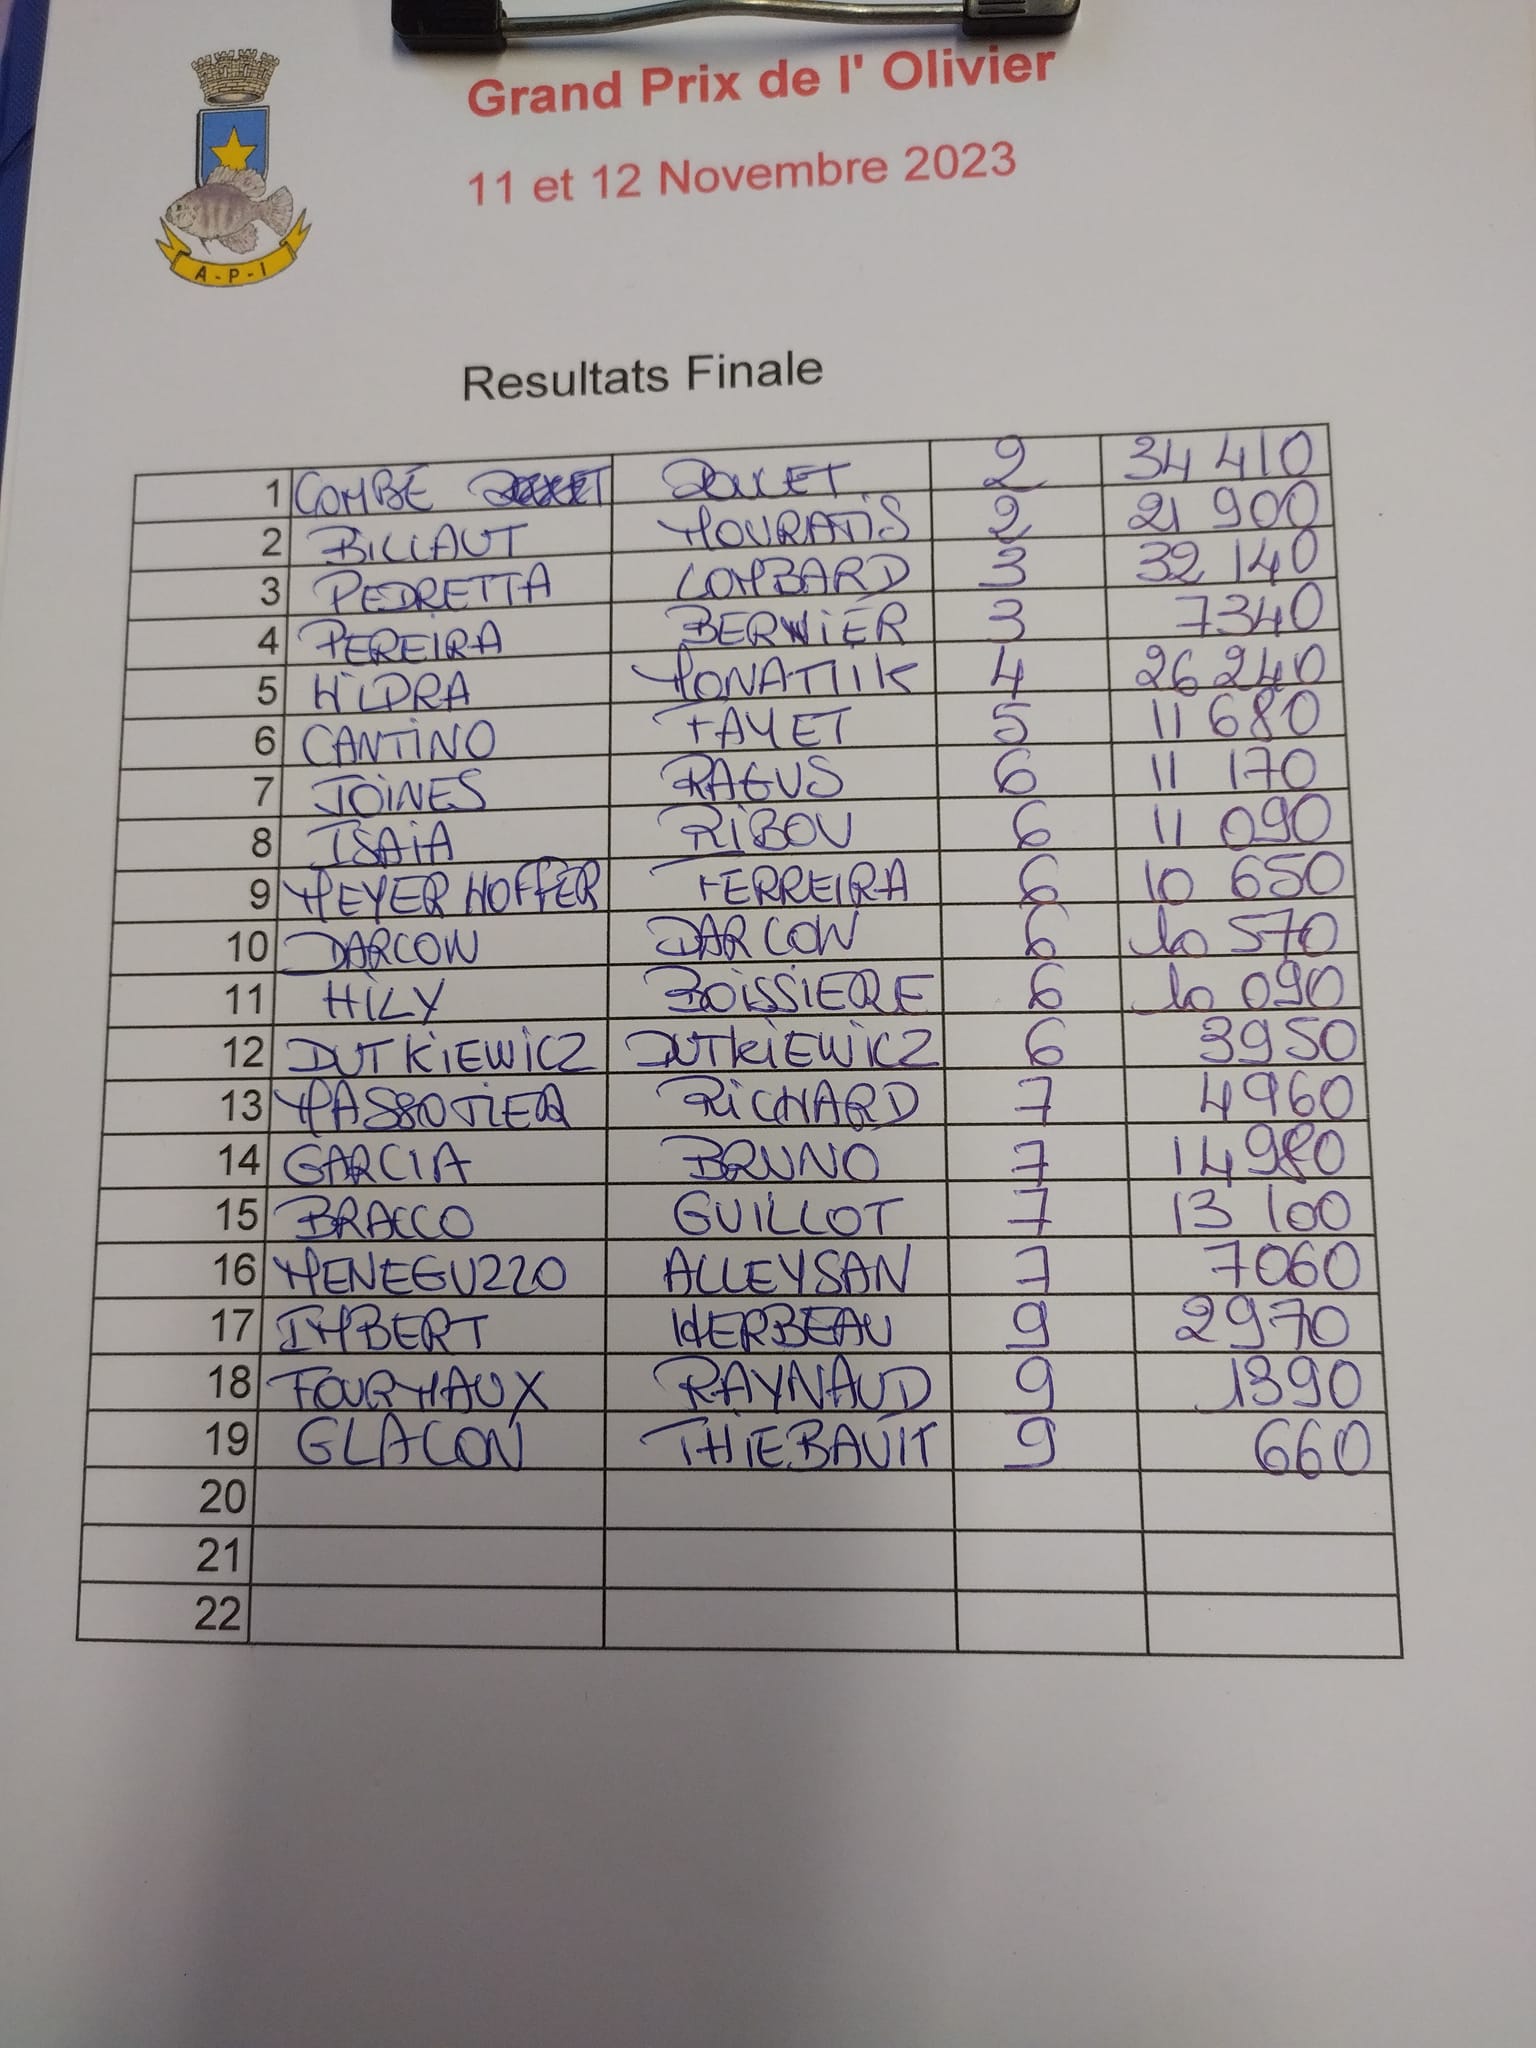 Grand Prix de l' Olivier
11 et 12 Novembre 2023
A - P - I
Resultats Finale
1 COMBÉ DOUCET 2 34 410
2 BILLAUT MOURATIS 2 21 900
3 PEDRETTA LOMBARD 3 32 140
4 PEREIRA BERNIER 3 7340
5 HIDRA 4 26 240
6 CANTINO FAYET 5 11 680
7 JOINES RAGUS 6 11 170
8 ISAIA RIBOU 6 11 090
9 MEYER HOFFER FERREIRA 6 10 650
10 DARCON DARCON 6 10 570
11 HILY BOISSIERE 6 10 090
12 DUTKIEWICZ DUTKIEWICZ 6 3950
13 MASSOTIER RICHARD 7 4960
14 GARCIA BRUNO 7 14980
15 BRACCO GUILLOT 7 13 100
16 MENEGUZZO ALLEYSAN 7 7060
17 IMBERT HERBEAU 9 2970
18 FOURMAUX RAYNAUD 9 1390
19 GLACON THIEBAUT 9 660
20
21
22